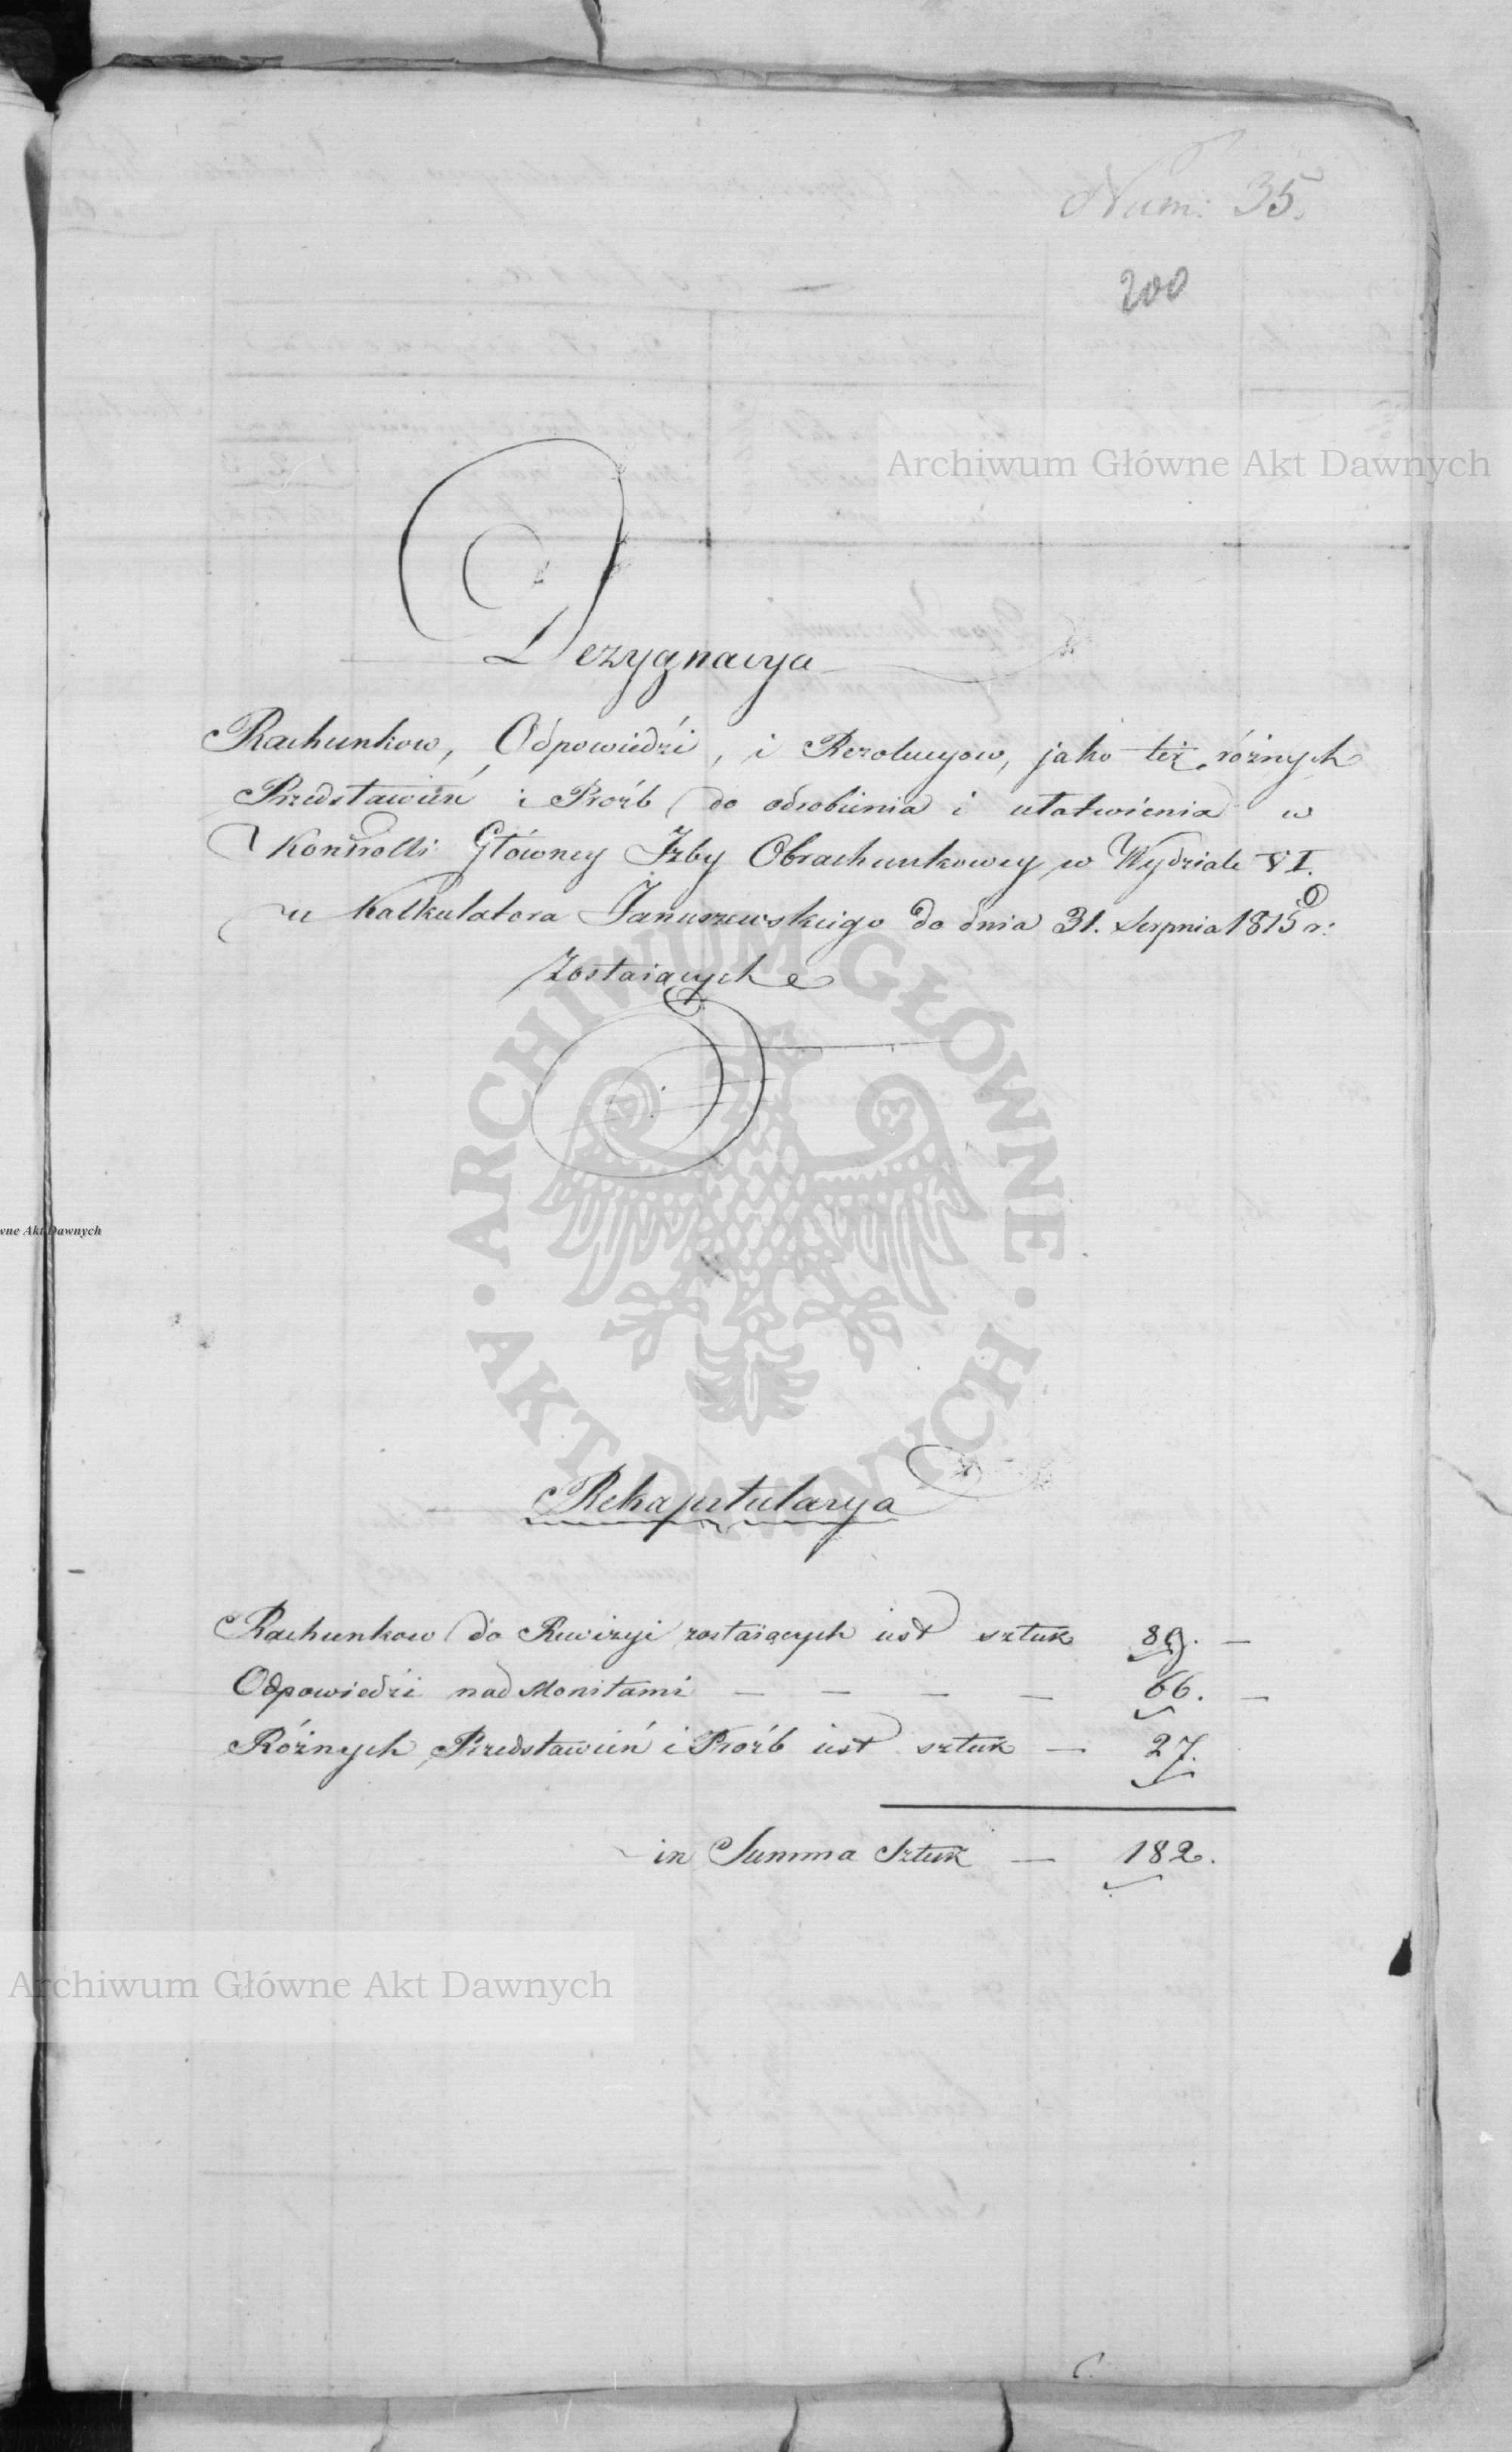 Num: 35.
200
Archiwum Główne Akt Dawnych
Dezygnacya
Rachunkow, Odpowiedźi, i Rezolucyow, jako też różnych
Przedstawień i Proźb do odrobienia i ułatwienia w
Kontrolli Główney Izby Obrachunkowey w Wydziale VI.
u Kalkulatora Januszewskiego do dnia 31. Serpnia 1815 r:
Zostaiących
wne Akt Dawnych
ARCHIWUM GŁÓWNE AKT DAWNYCH
Rekapitulacya
Rachunkow do Rewizyi zostaiących iest sztuk 89. —
Odpowiedźi nad Monitami — — — — 66. —
Różnych Przedstawień i Proźb iest sztuk — 27.
in Summa Sztuk — 182.
Archiwum Główne Akt Dawnych